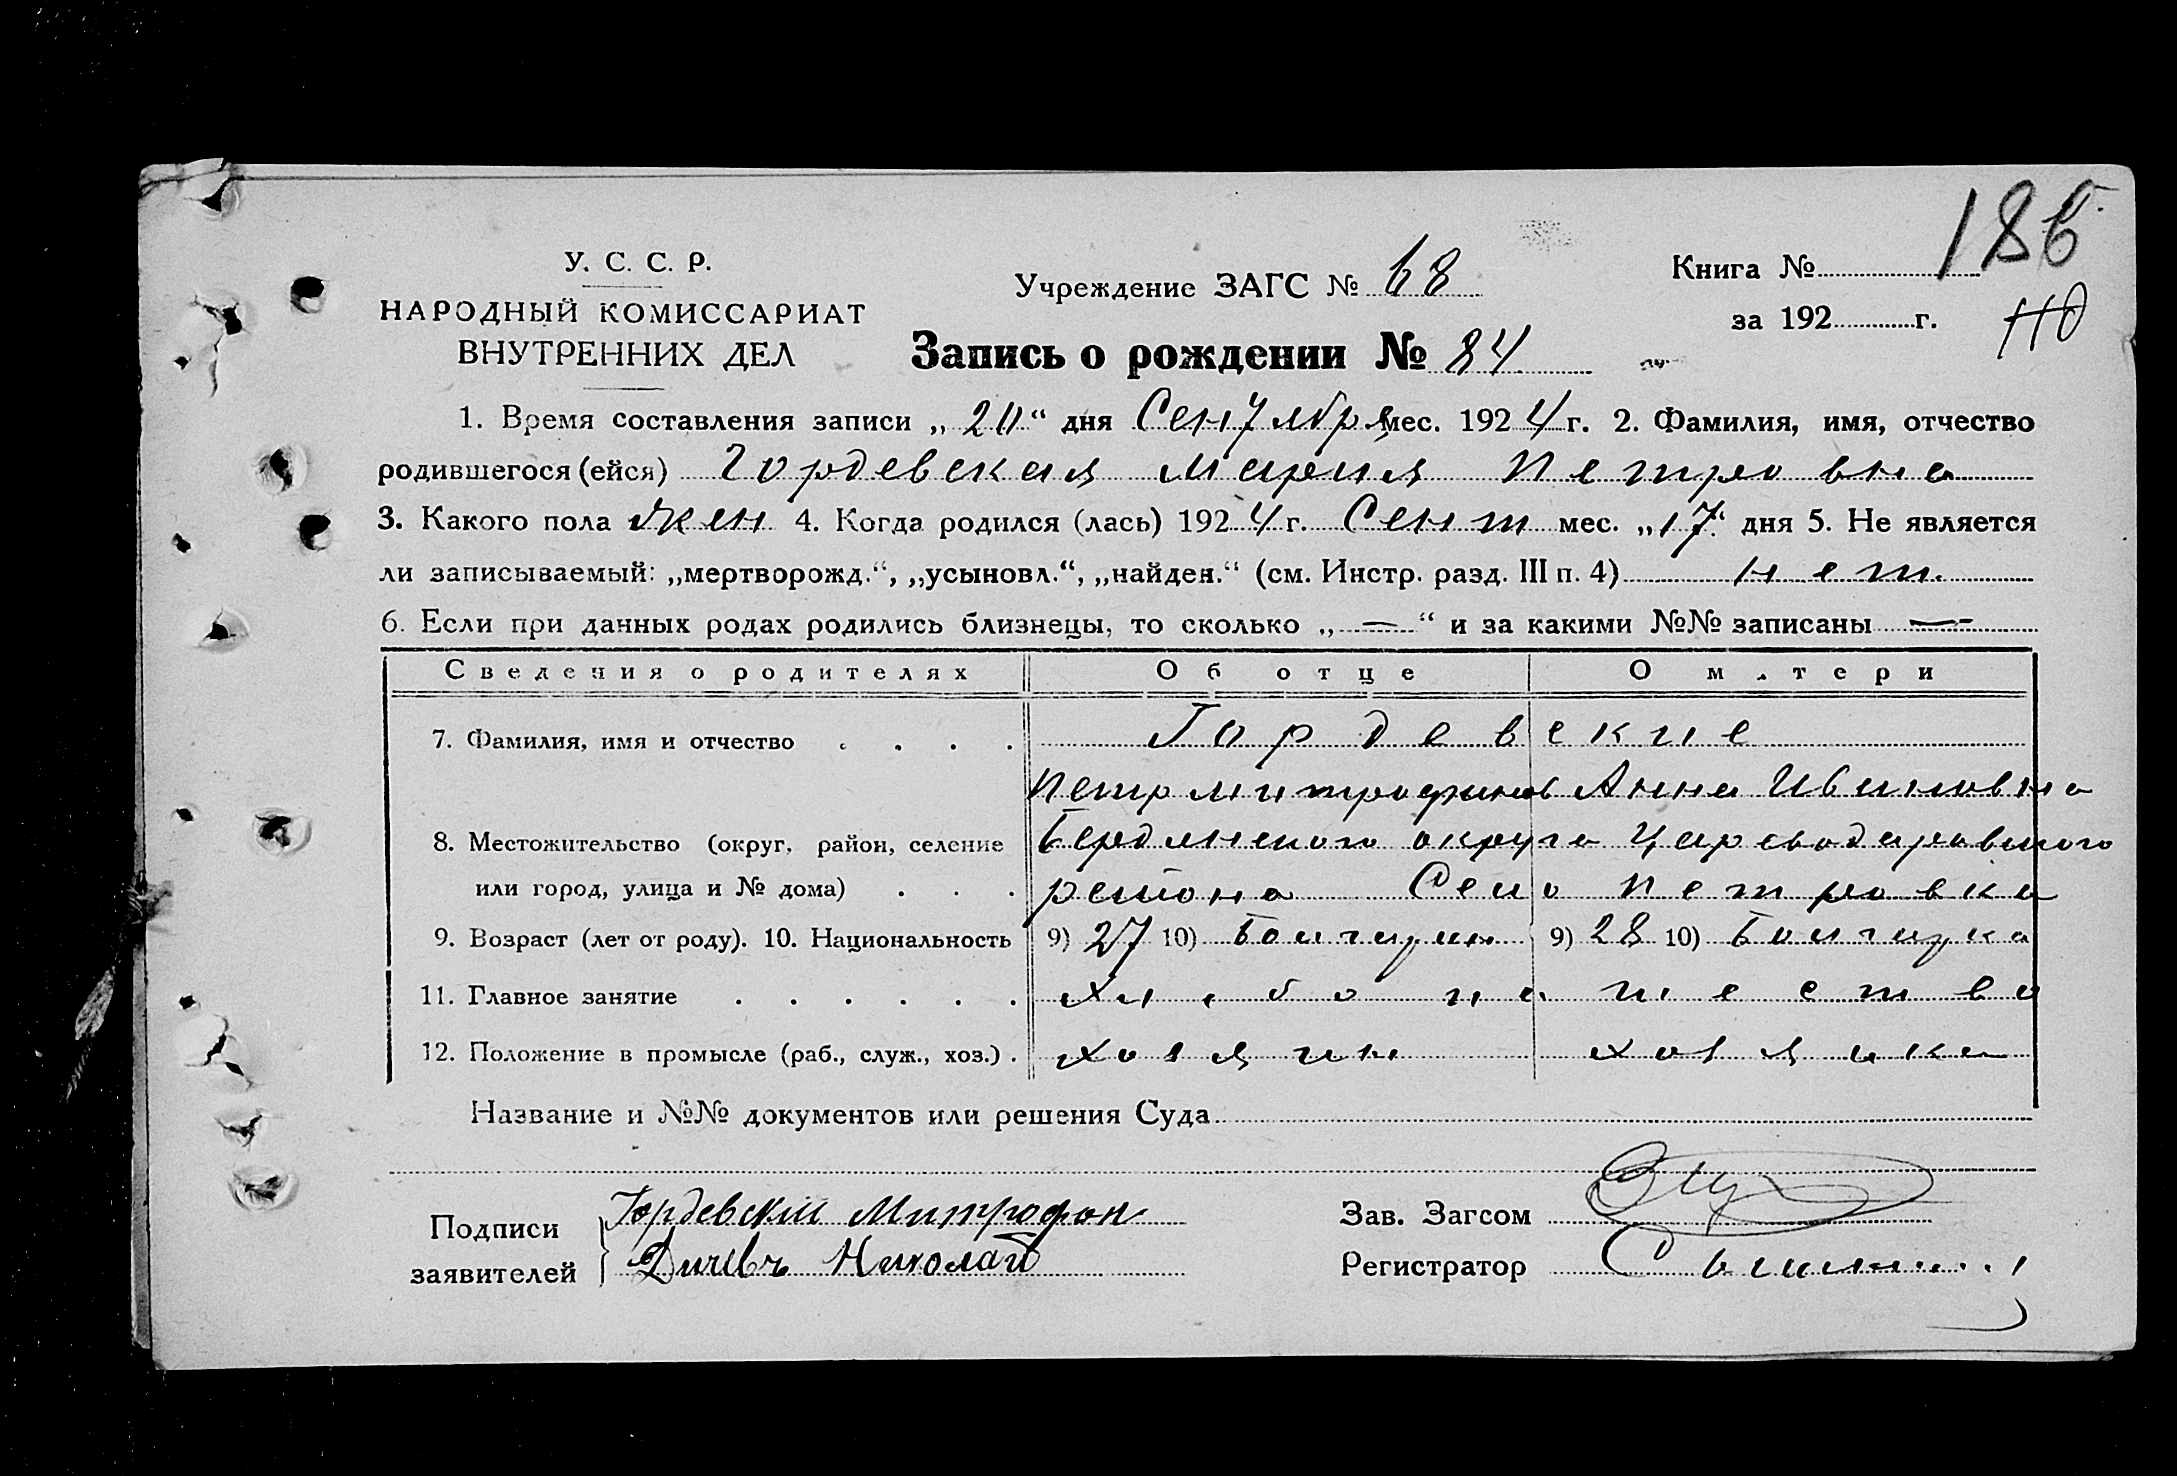 186
У. С. С. Р.
НАРОДНЫЙ КОМИССАРИАТ
ВНУТРЕННИХ ДЕЛ
Учреждение ЗАГС № 68
Книга №
за 192 г.
Запись о рождении № 84
1. Время составления записи „20“ дня Сентября мес. 1924 г. 2. Фамилия, имя, отчество
родившегося (ейся) Гордевская Мария Петровна
3. Какого пола жен 4. Когда родился (лась) 1924 г. Сент мес. „17“ дня 5. Не является
ли записываемый: „мертворожд.“, „усыновл.“, „найден.“ (см. Инстр. разд. III п. 4) нет.
6. Если при данных родах родились близнецы, то сколько „—“ и за какими №№ записаны —
Сведения о родителях Об отце О м.тери
7. Фамилия, имя и отчество . . . . Гордевские
Петр Митрофанов Анна Ивановна
8. Местожительство (округ, район, селение Бердянского округа Царсводаровского
или город, улица и № дома) . . . района Село Петровка
9. Возраст (лет от роду). 10. Национальность 9) 27 10) Болгарин 9) 28 10) Болгарка
11. Главное занятие . . . . . . Хлебопашество
12. Положение в промысле (раб., служ., хоз.) . хозяин хозяйка
Название и №№ документов или решения Суда
Подписи
заявителей
Гордевский Митрофан
Николай
Зав. Загсом
Регистратор